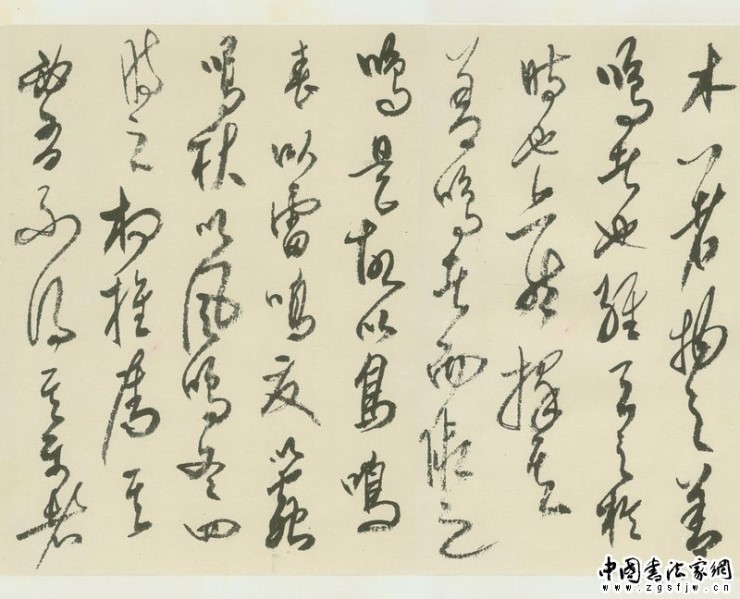 木八者物之善
鳴者也維天之於
時也亦然擇其
善鳴者而假之
鳴是故以鳥鳴
春以雷鳴夏以蟲
鳴秋以風鳴冬四
時之相推奪其
必有不得其平者
中国书法家網
www.zgsfjw.cn